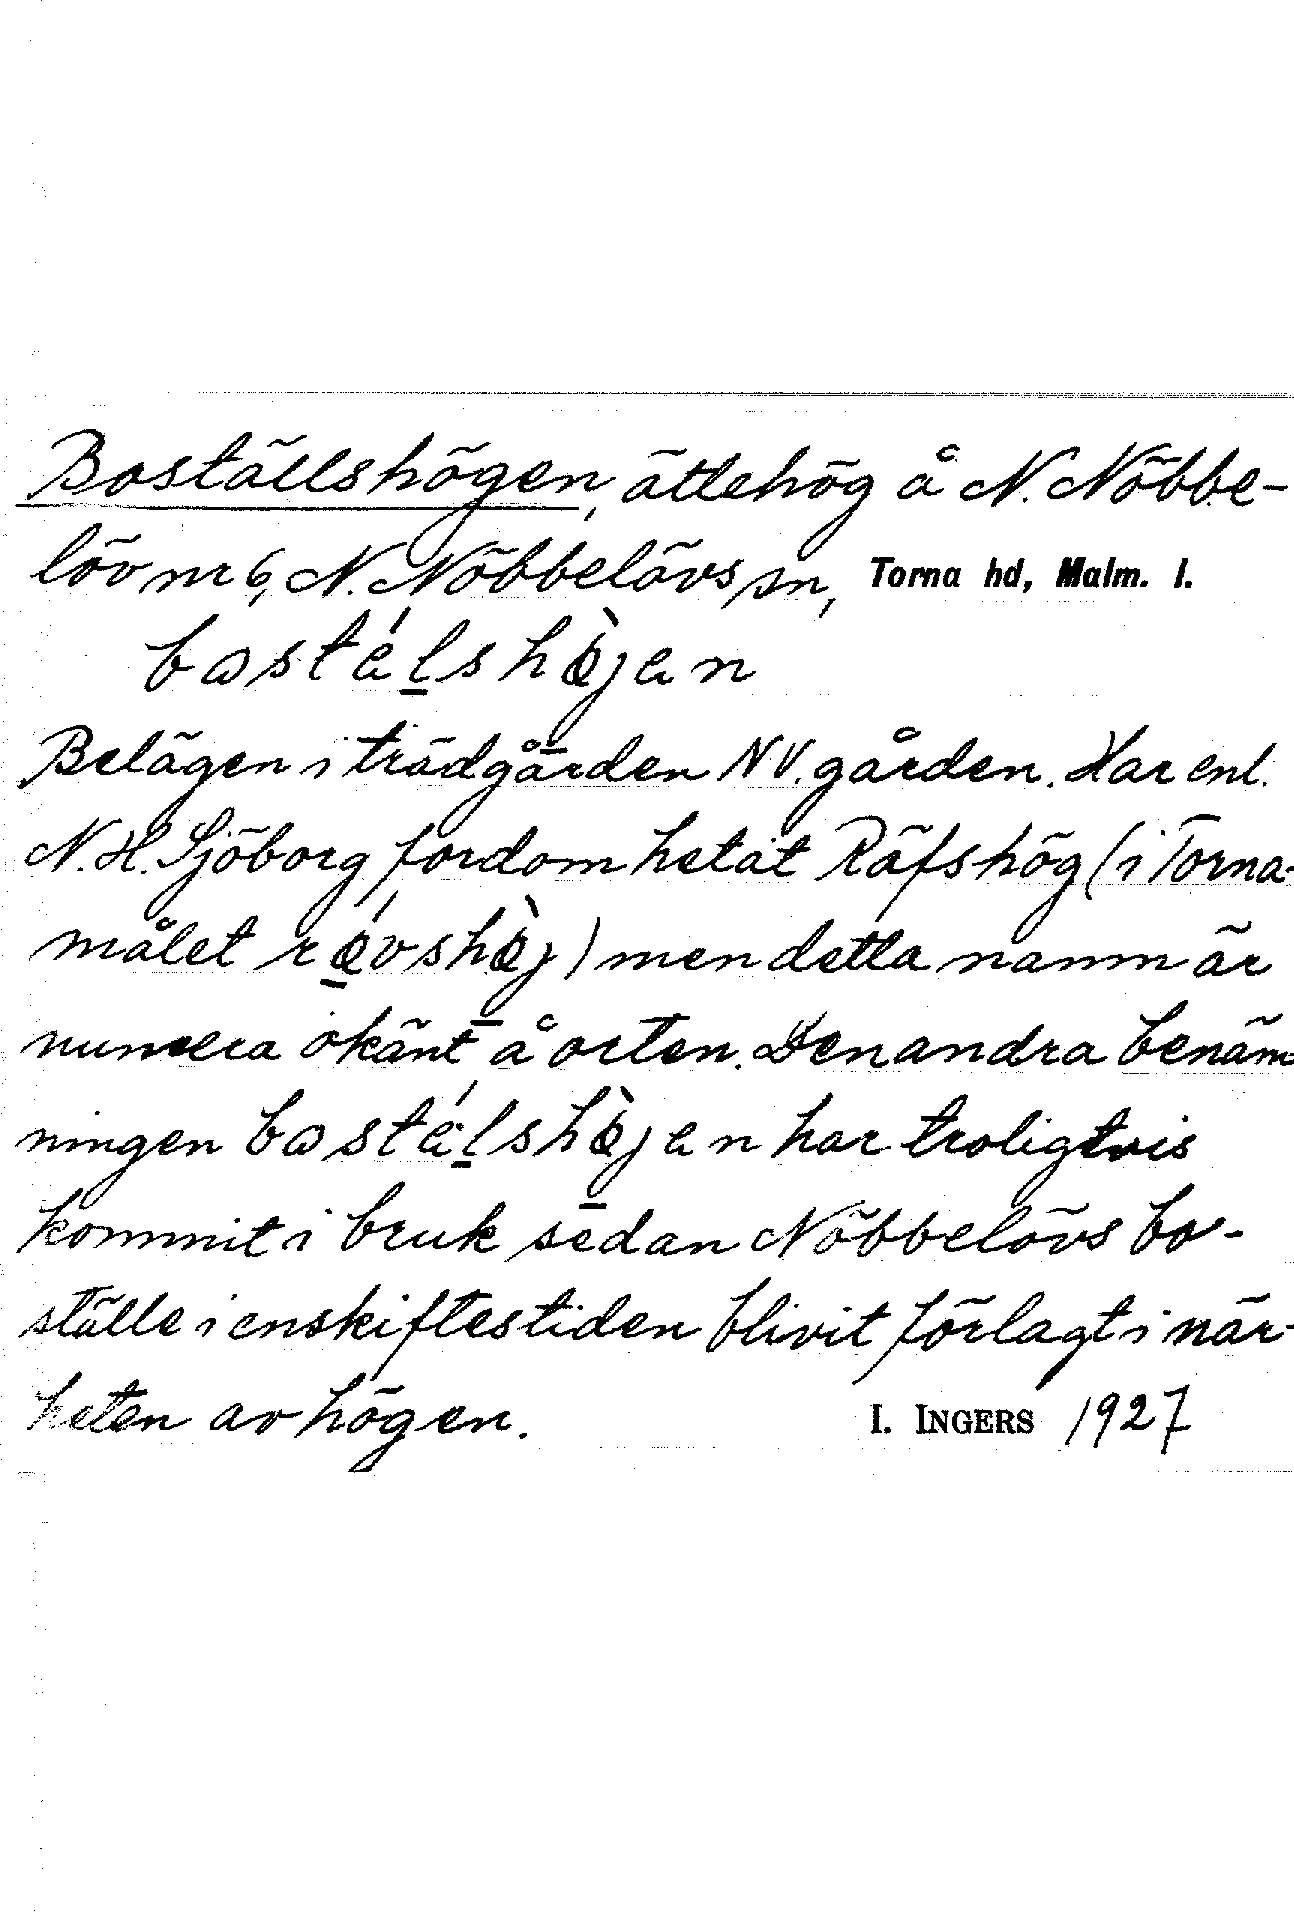 Boställshögen, ättehög å N. Nöbbe-
löv nr 6, N. Nöbbelövs sn, Torna hd, Malm. l.
bostálshø̀jen
Belägen i trädgården NV. gården. Har enl.
N. H. Sjöborg fordom hetat Räfshög (i Torna-
målet rǿvshø̀j) men detta namn är
numera okänt å orten. Den andra benäm
ningen bostálshø̀jen har troligtvis
kommit i bruk sedan Nöbbelövs bo-
ställe i enskiftestiden blivit förlagt i när-
heten av högen. I. INGERS 1927